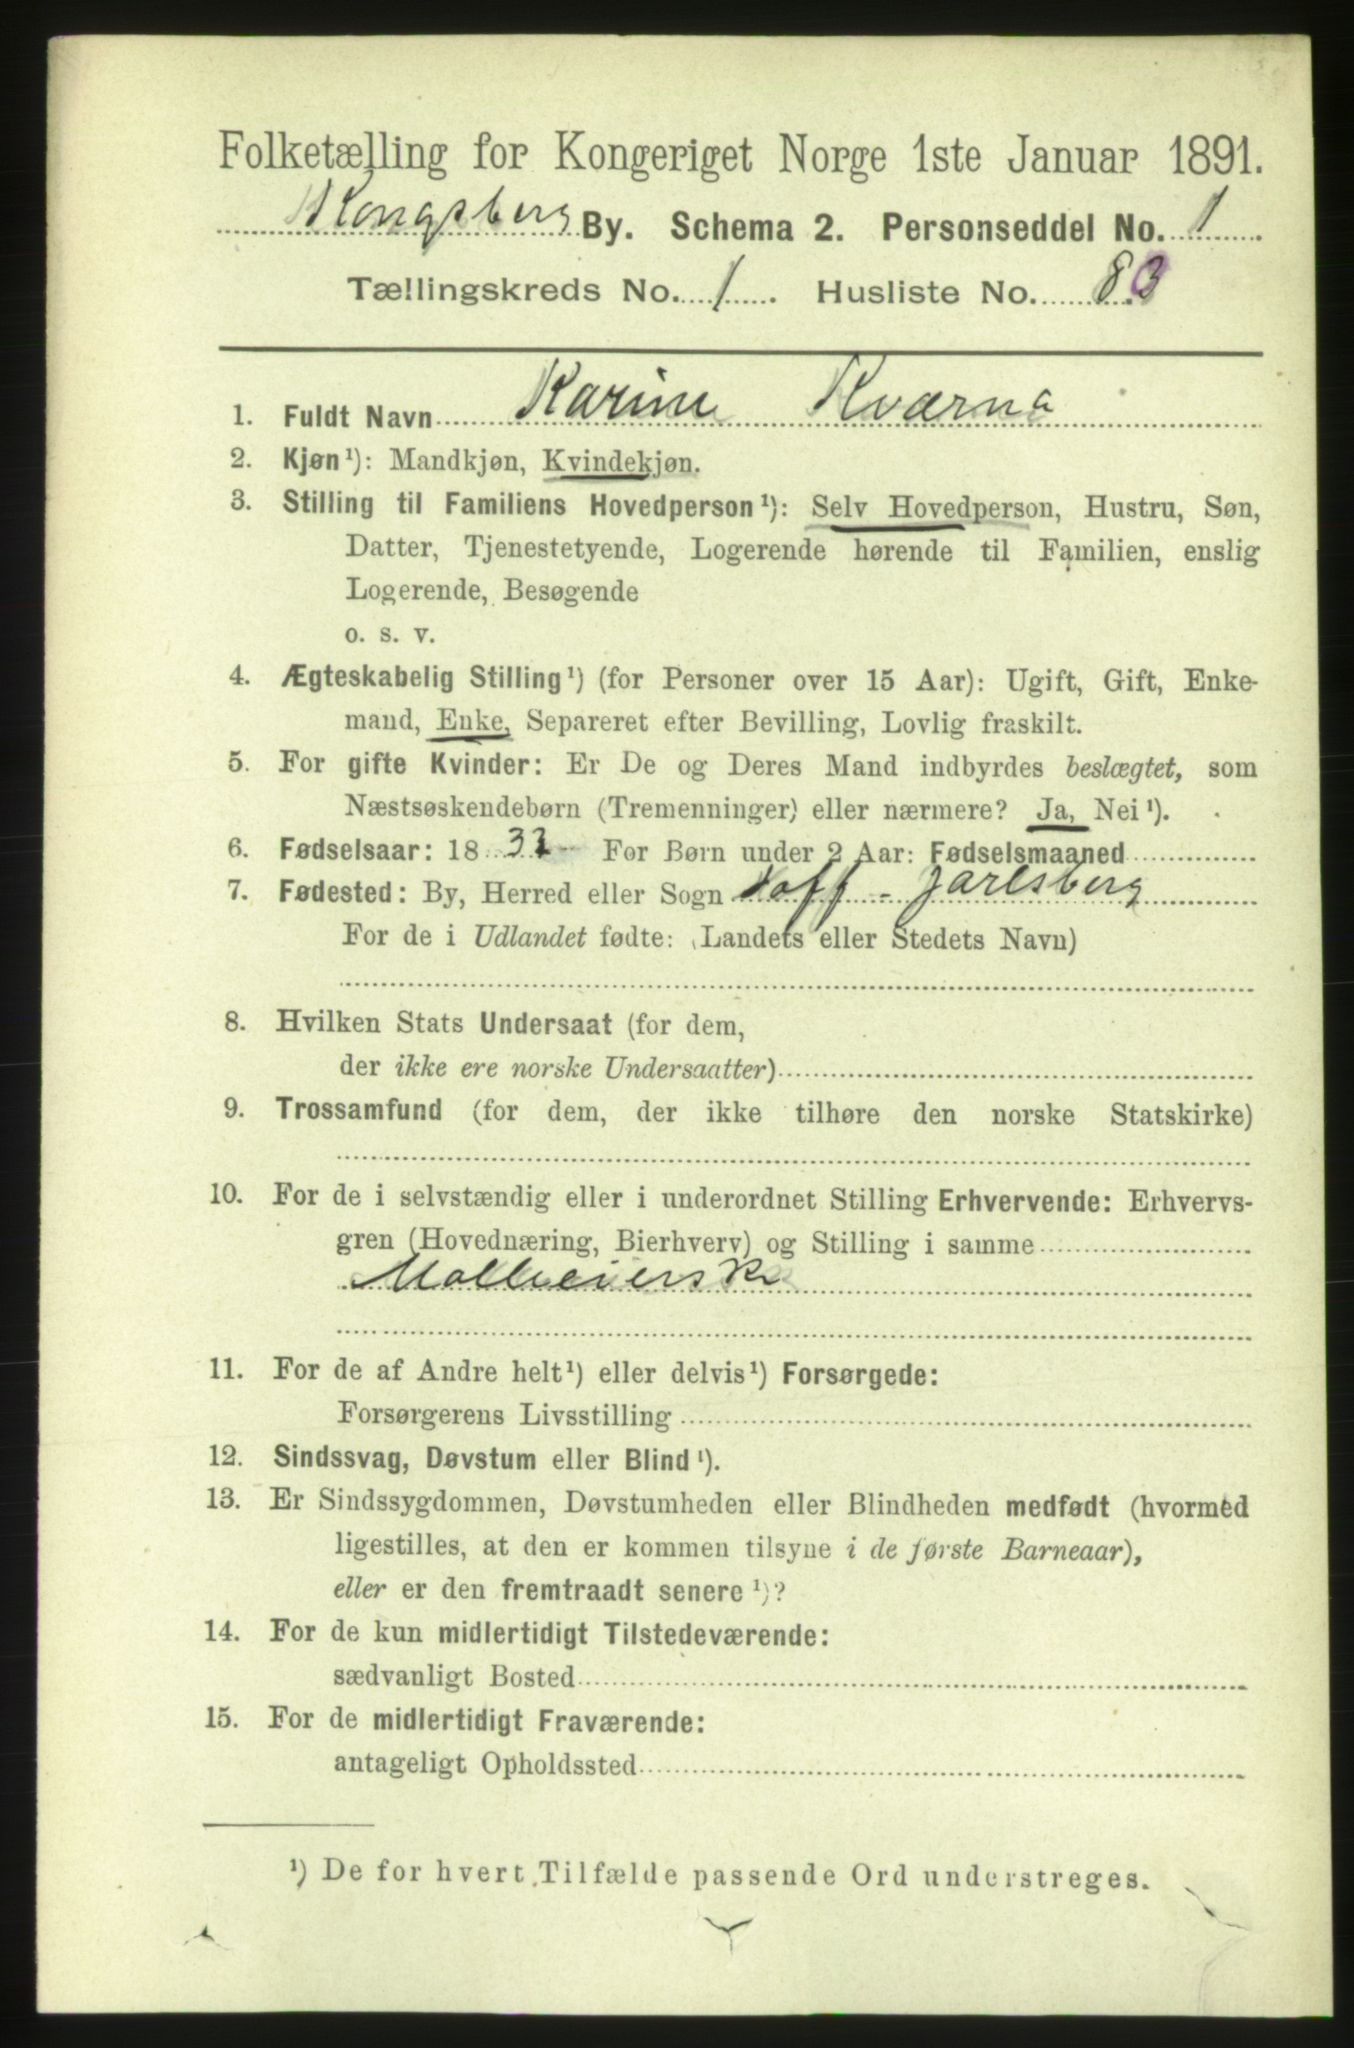 Folketælling for Kongeriget Norge 1ste Januar 1891.
Kongsberg By. Schema 2. Personseddel No. 1
Tællingskreds No. 1. Husliste No. 83
1. Fuldt Navn Karine Kværna
2. Kjøn¹): Mandkjøn, Kvindekjøn.
3. Stilling til Familiens Hovedperson¹): Selv Hovedperson, Hustru, Søn,
Datter, Tjenestetyende, Logerende hørende til Familien, enslig
Logerende, Besøgende
o. s. v.
4. Ægteskabelig Stilling¹) (for Personer over 15 Aar): Ugift, Gift, Enke-
mand, Enke, Separeret efter Bevilling, Lovlig fraskilt.
5. For gifte Kvinder: Er De og Deres Mand indbyrdes beslægtet, som
Næstsøskendebørn (Tremenninger) eller nærmere? Ja, Nei¹).
6. Fødselsaar: 18 For Børn under 2 Aar: Fødselsmaaned
7. Fødested: By, Herred eller Sogn Hoff - Jarlsberg
For de i Udlandet fødte: (Landets eller Stedets Navn)
8. Hvilken Stats Undersaat (for dem,
der ikke ere norske Undersaatter)
9. Trossamfund (for dem, der ikke tilhøre den norske Statskirke)
10. For de i selvstændig eller i underordnet Stilling Erhvervende: Erhvervs-
gren (Hovednæring, Bierhverv) og Stilling i samme
11. For de af Andre helt¹) eller delvis¹) Forsørgede:
Forsørgerens Livsstilling
12. Sindssvag, Døvstum eller Blind¹).
13. Er Sindssygdommen, Døvstumheden eller Blindheden medfødt (hvormed
ligestilles, at den er kommen tilsyne i de første Barneaar),
eller er den fremtraadt senere¹)?
14. For de kun midlertidigt Tilstedeværende:
sædvanligt Bosted
15. For de midlertidigt Fraværende:
antageligt Opholdssted
¹) De for hvert Tilfælde passende Ord understreges.